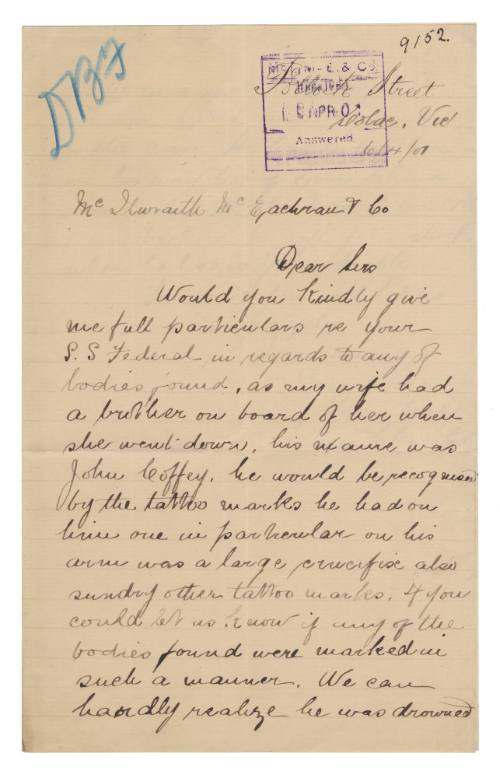 9/52.
DBF
Mc. & Co.
APR 01
Answered
Street
Colac, Vic
6/4/01
Mc Ilwraith McEachran & Co
Dear Sirs
Would you Kindly give
me full particulars re your
S.S Federal in regards to any of
bodies found, as my wife had
a brother on board of her when
she went down, his name was
John Coffey, he would be recognised
by the tattoo marks he had on
him one in particular on his
arm was a large crucifix also
sundry other tattoo marks, if you
could let us know if any of the
bodies found were marked in
such a manner. We can
hardly realize he was drowned